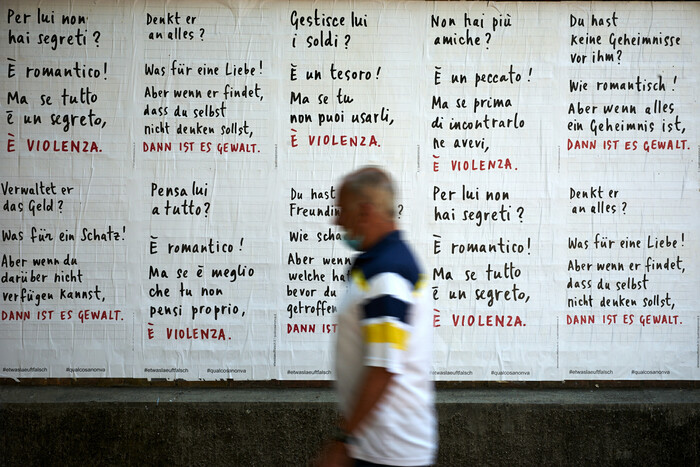 Per lui non
hai segreti?
È romantico!
Ma se tutto
è un segreto,
È VIOLENZA.
Denkt er
an alles?
Was für eine Liebe!
Aber wenn er findet,
dass du selbst
nicht denken sollst,
DANN IST ES GEWALT.
Gestisce lui
i soldi?
È un tesoro!
Ma se tu
non puoi usarli,
È VIOLENZA.
Non hai più
amiche?
È un peccato!
Ma se prima
di incontrarlo
ne avevi,
È VIOLENZA.
Du hast
keine Geheimnisse
vor ihm?
Wie romantisch!
Aber wenn alles
ein Geheimnis ist,
DANN IST ES GEWALT.
Verwaltet er
das Geld?
Was für ein Schatz!
Aber wenn du
darüber nicht
verfügen kannst,
DANN IST ES GEWALT.
#etwaslaeuftfalsch #qualcosanonva
Pensa lui
a tutto?
È romantico!
Ma se è meglio
che tu non
pensi proprio,
È VIOLENZA.
#etwaslaeuftfalsch #qualcosanonva
Du hast
Wie
Aber
welche
bevor du
DANN IST
#etwaslaeuftfalsch
Per lui non
hai segreti?
È romantico!
Ma se tutto
è un segreto,
È VIOLENZA.
#qualcosanonva
Denkt er
an alles?
Was für eine Liebe!
Aber wenn er findet,
dass du selbst
nicht denken sollst,
DANN IST ES GEWALT.
#etwaslaeuftfalsch #qualcosanonva